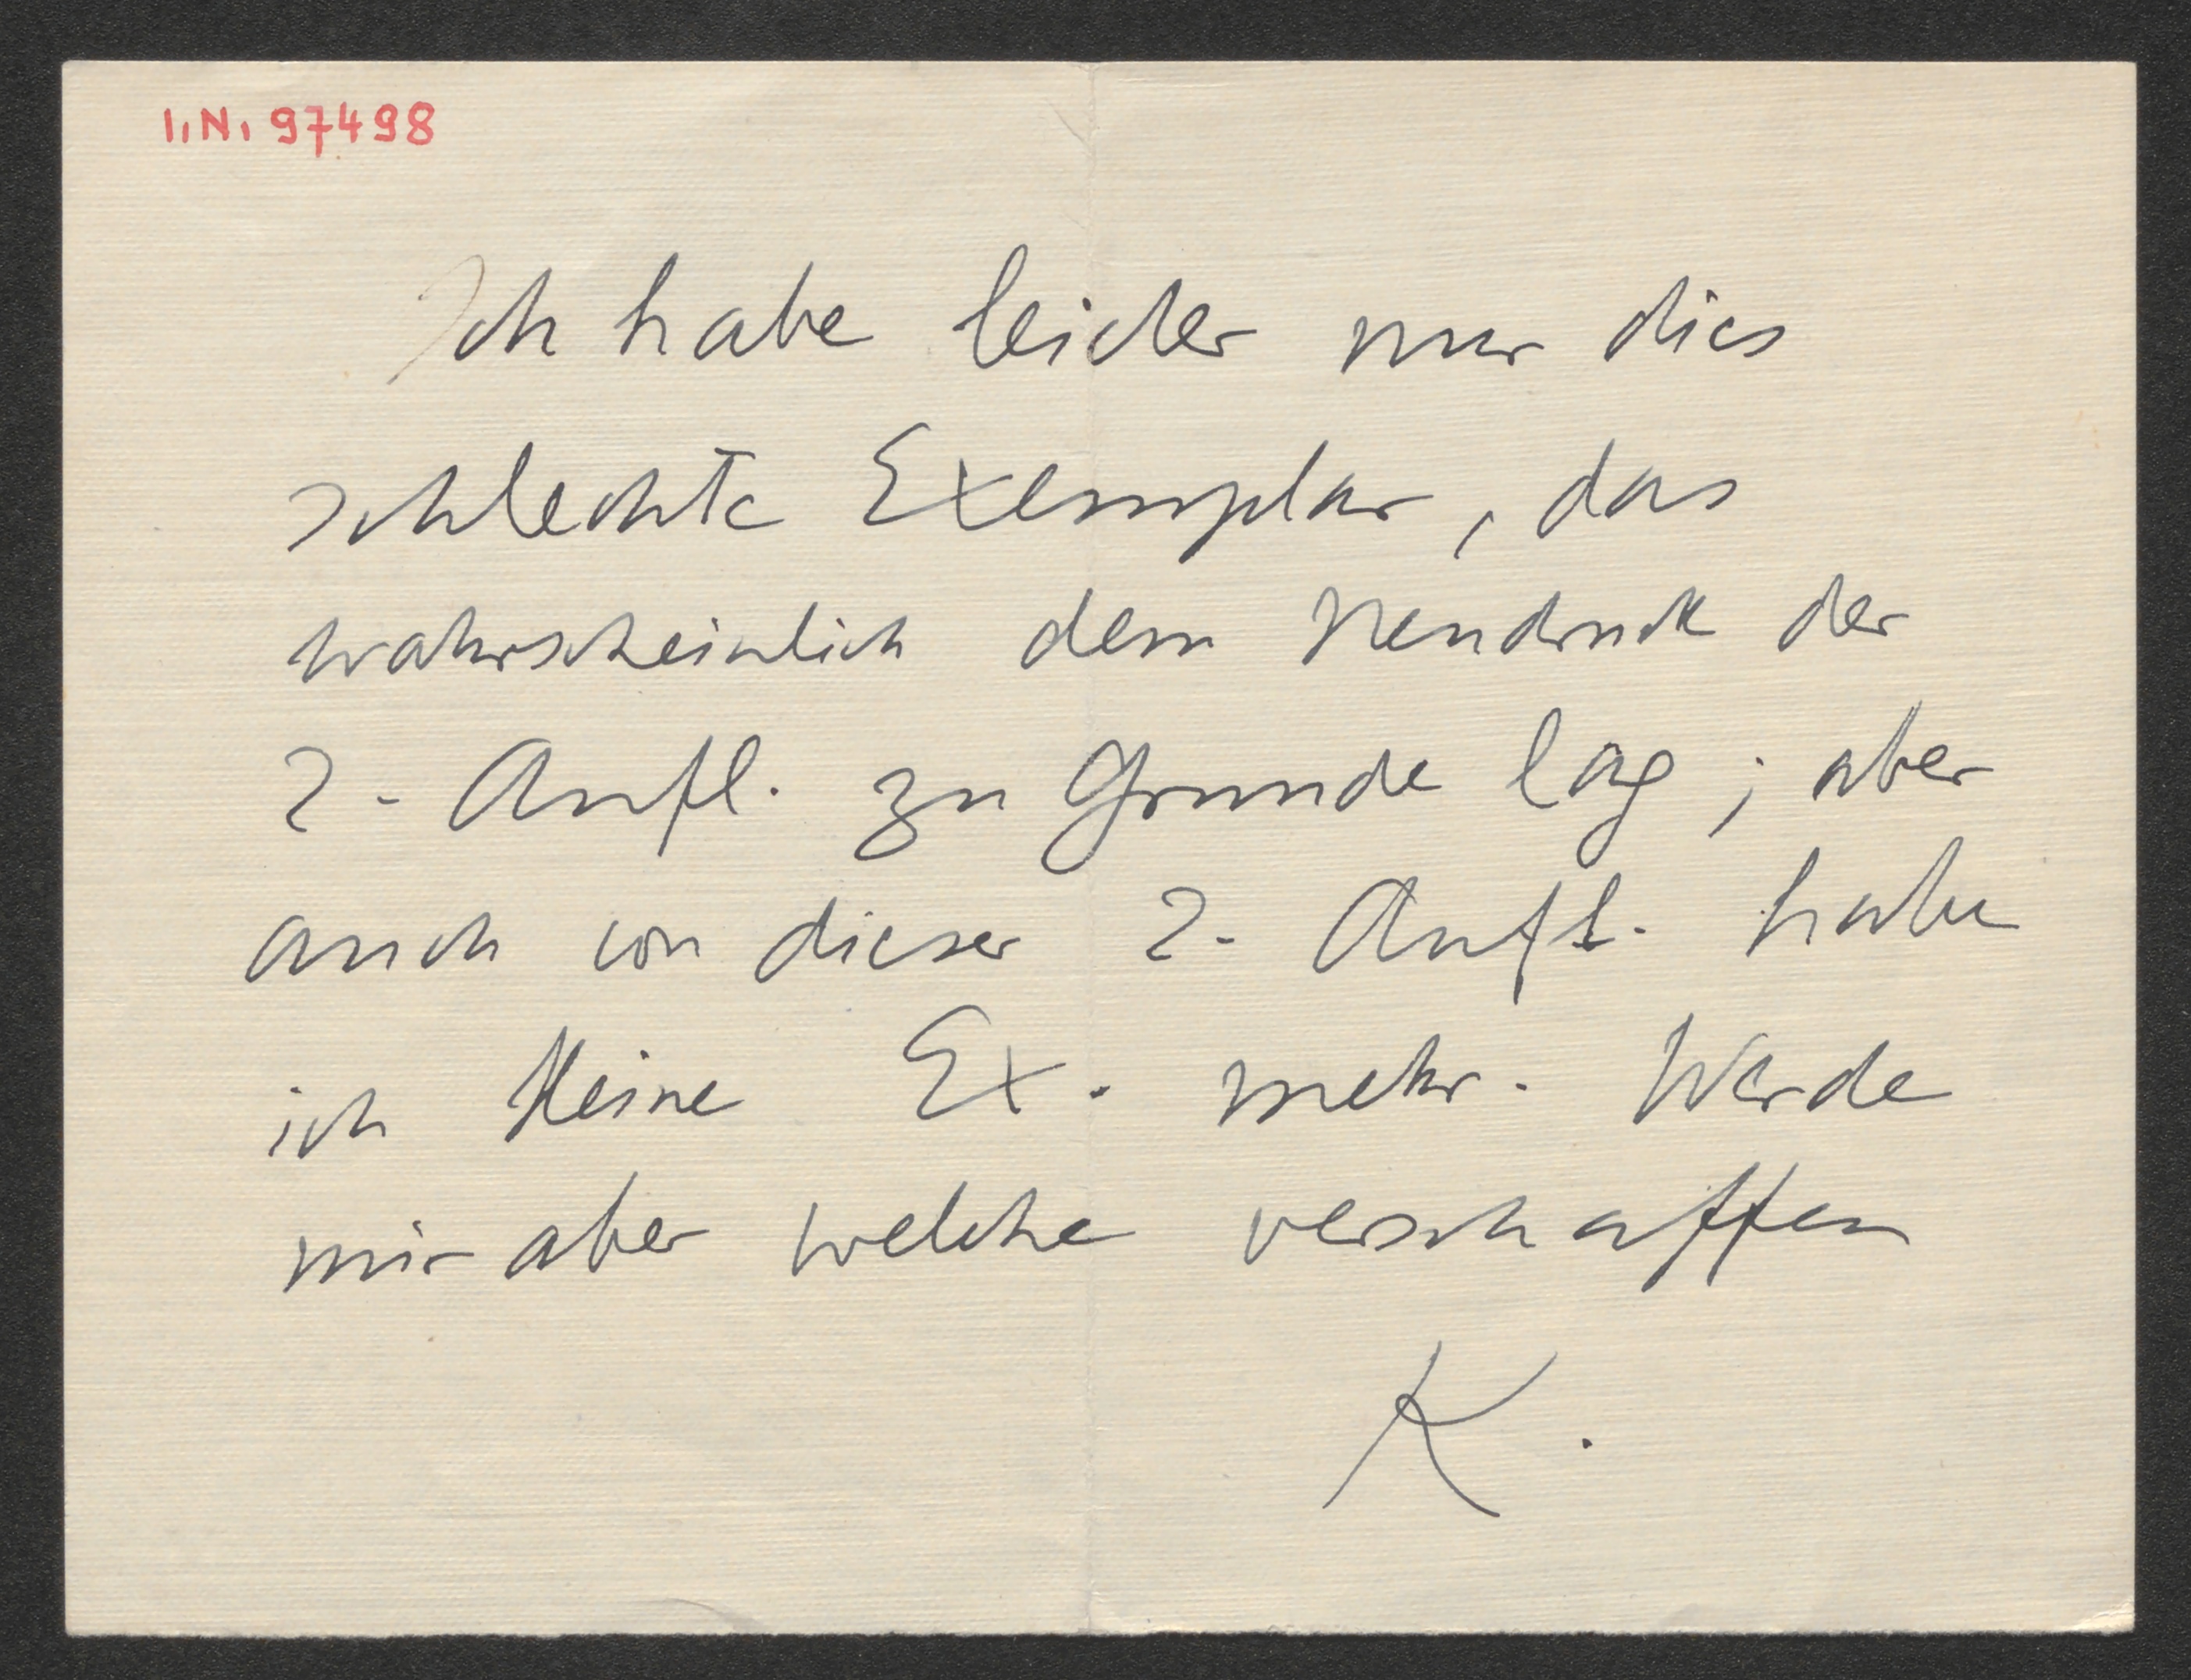 I.N. 97498
Ich habe leider nur dies
schlechte Exemplar, das
wahrscheinlich dem Neudruck der
2. Aufl. zu Grunde lag; aber
auch von dieser 2. Aufl. habe
ich keine Ex. mehr. Werde
mir aber welche verschaffen
K.